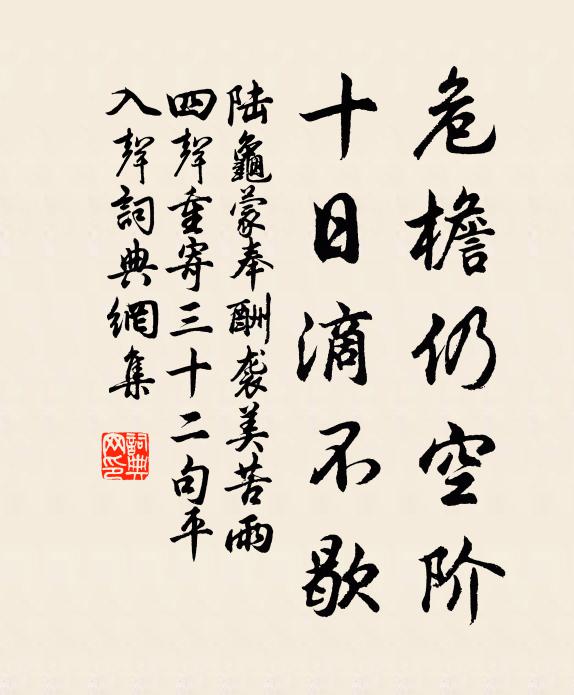 危檐仍空阶
十日滴不歇
陆龜蒙奉酬袭美苦雨
四聲重寄三十二句平
入聲詞典網集
詞典
网印